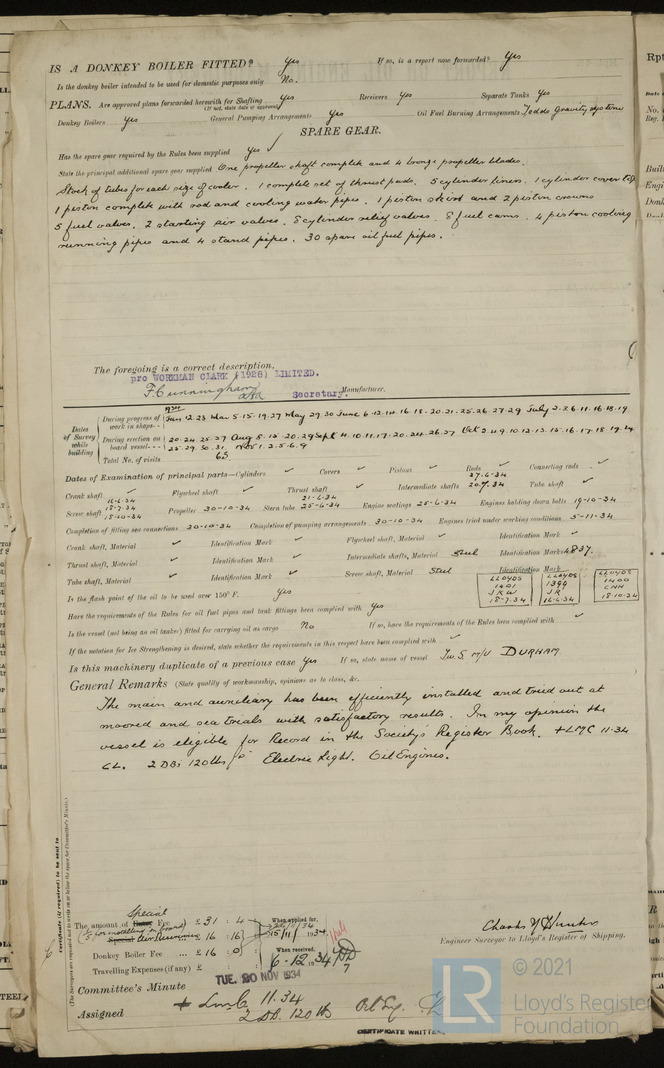 IS A DONKEY BOILER FITTED? Yes If so, is a report now forwarded? Yes
Is the donkey boiler intended to be used for domestic purposes only No.
PLANS. Are approved plans forwarded herewith for Shafting Yes Receivers Yes Separate Tanks Yes
(If not, state date of approval)
Donkey Boilers Yes General Pumping Arrangements Yes Oil Fuel Burning Arrangements Todds Gravity System
SPARE GEAR.
Has the spare gear required by the Rules been supplied Yes ✓
State the principal additional spare gear supplied One propeller shaft complete and 4 bronze propeller blades.
Stock of tubes for each size of cooler. 1 complete set of thrust pads. 5 cylinder liners. 1 cylinder cover
1 piston complete with rod and cooling water pipes. 1 piston skirt and 2 piston crowns
5 fuel valves. 2 starting air valves. 8 cylinder relief valves. 8 fuel cams. 4 piston cooling
running pipes and 4 stand pipes. 30 spare oil fuel pipes.
The foregoing is a correct description,
pro WORKMAN CLARK (1928) LIMITED.
F Cunningham Secretary. Manufacturer.
Dates of Survey while building
During progress of work in shops-- 1934 Jan 12. 23 Mar 5. 15. 19. 27 May 29. 30 June 6. 12. 14. 16. 18. 20. 21. 25. 26. 27. 29 July 2. 3. 6. 11. 16. 18. 19
During erection on board vessel-- 20. 24. 25. 27 Aug 8. 15. 20. 29 Sept 4. 10. 11. 17. 20. 24. 26. 27 Oct 2. 4. 9. 10. 12. 13. 15. 16. 17. 18. 19. 24
25. 29. 30. 31 Nov 1. 2. 5. 6. 9
Total No. of visits 63
Dates of Examination of principal parts—Cylinders ✓ Covers ✓ Pistons ✓ Rods ✓ Connecting rods ✓
27.6.34
Crank shaft ✓ Flywheel shaft ✓ Thrust shaft ✓ Intermediate shafts 20.7.34 Tube shaft ✓
16.6.34
18.7.34
Screw shaft 18.10.34 Propeller 30-10-34 Stern tube 21-6-34 25-6-34 Engine seatings 25-6-34 Engines holding down bolts 19-10-34
Completion of fitting sea connections 20-10-34 Completion of pumping arrangements 30-10-34 Engines tried under working conditions 5-11-34
Crank shaft, Material ✓ Identification Mark ✓ Flywheel shaft, Material ✓ Identification Mark ✓
Thrust shaft, Material ✓ Identification Mark ✓ Intermediate shafts, Material Steel Identification Marks 4837.
Tube shaft, Material ✓ Identification Mark ✓ Screw shaft, Material Steel Identification Mark
LLOYDS 1401 JRW 18-7-34
LLOYDS 1399 JR 16.6.34
LLOYDS 1400 CNH 18.10.34
Is the flash point of the oil to be used over 150° F. Yes
Have the requirements of the Rules for oil fuel pipes and tank fittings been complied with Yes
Is the vessel (not being an oil tanker) fitted for carrying oil as cargo No If so, have the requirements of the Rules been complied with ✓
If the notation for Ice Strengthening is desired, state whether the requirements in this respect have been complied with ✓
Is this machinery duplicate of a previous case Yes If so, state name of vessel Tw. S. M/V DURHAM
General Remarks (State quality of workmanship, opinions as to class, &c.
The main and auxiliary has been efficiently installed and tried out at
moored and sea trials with satisfactory results. In my opinion the
vessel is eligible for Record in the Society's Register Book. + LMC 11.34
CL. 2 DBs 120 lbs Electric Light. Oil Engines.
Certificate (if required) to be sent to
(The Surveyors are requested not to write on or below the space for Committee's Minute.)
Special
The amount of Fee £ 31 : 4
£ 16 : 16
Donkey Boiler Fee £ 16 : 0
Travelling Expenses (if any) £
When applied for, 15/11/1934
When received, 6-12-1934
Charles N Hunter
Engineer Surveyor to Lloyd's Register of Shipping.
TUE. 20 NOV 1934
Committee's Minute
Assigned + LMC 11.34
2 DB. 120 lb Oil Eng.
CERTIFICATE WRITTEN
© 2021
LR Lloyd's Register
Foundation